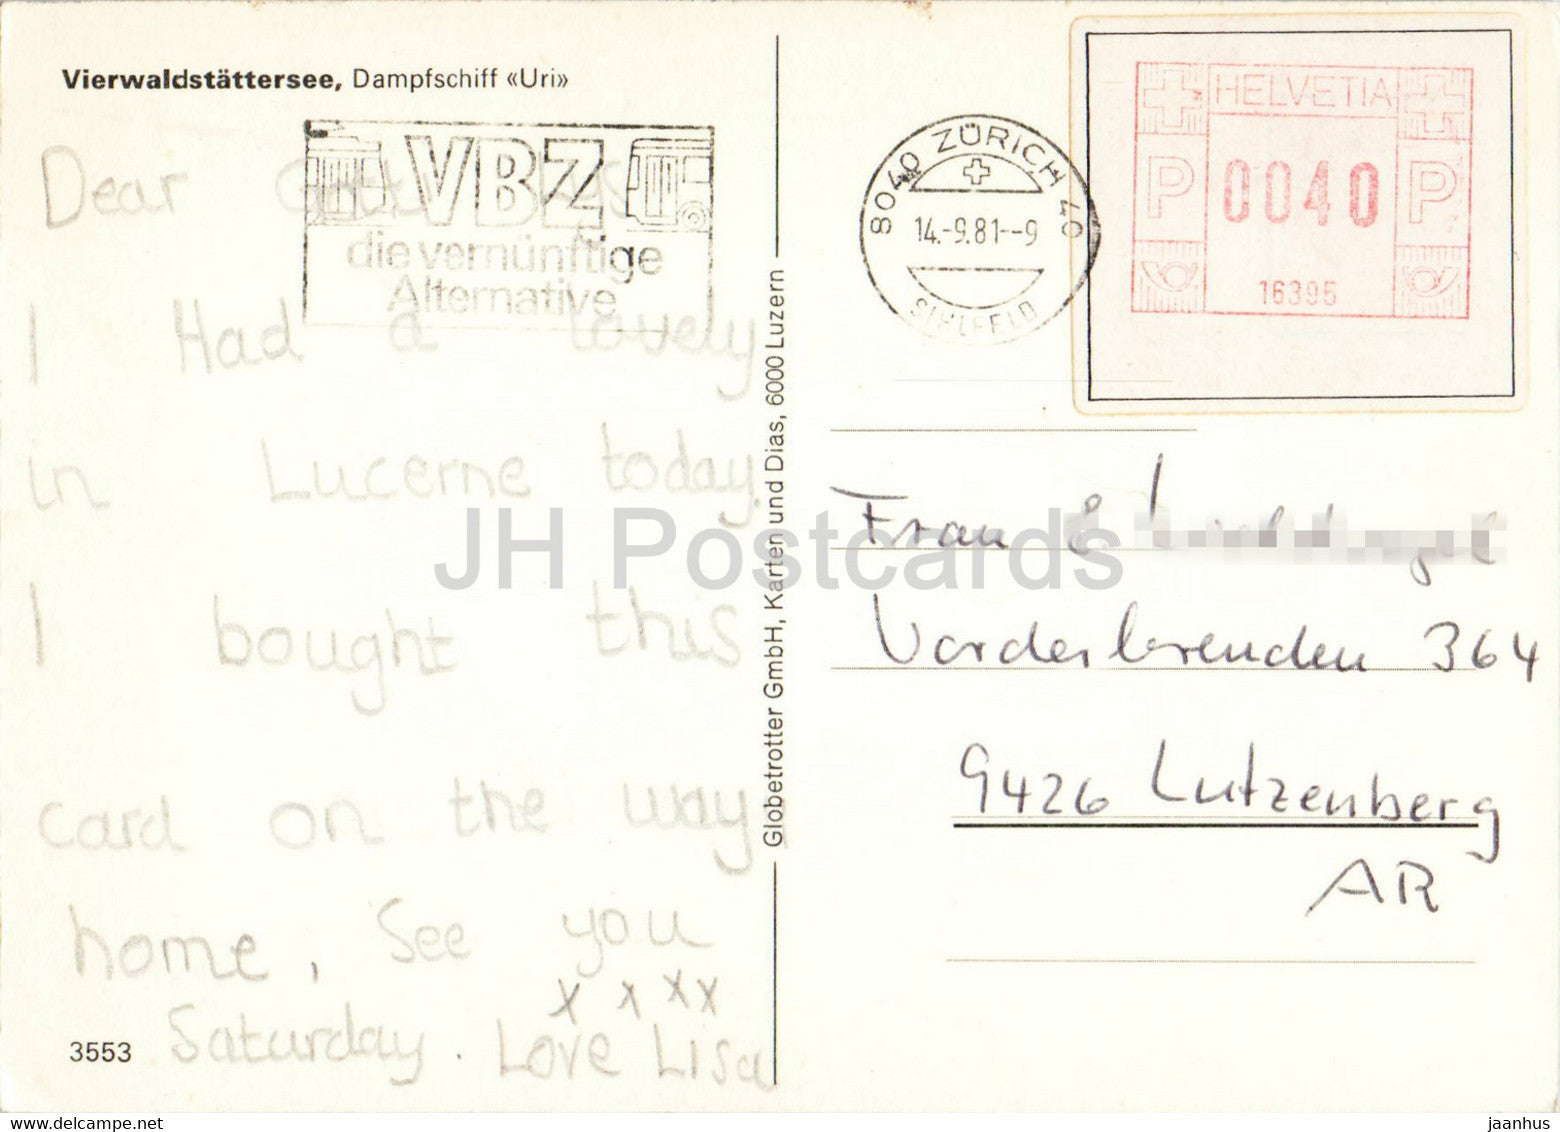 Vierwaldstättersee, Dampfschiff «Uri»
VBZ
die vernünftige
Alternative
Dear
I Had a lovely
in Lucerne today.
I bought this
card on the way
home, See you
x x x x
Saturday. Love Lisa
3553
Globetrotter GmbH, Karten und Dias, 6000 Luzern
8040 ZÜRICH 40
14.-9.81--9
SIHLFELD
HELVETIA
P 0040 P
16395
Frau E
Vorderlorenden 364
9426 Lutzenberg
AR
JH Postcards
www.delcampe.net
jaanhus